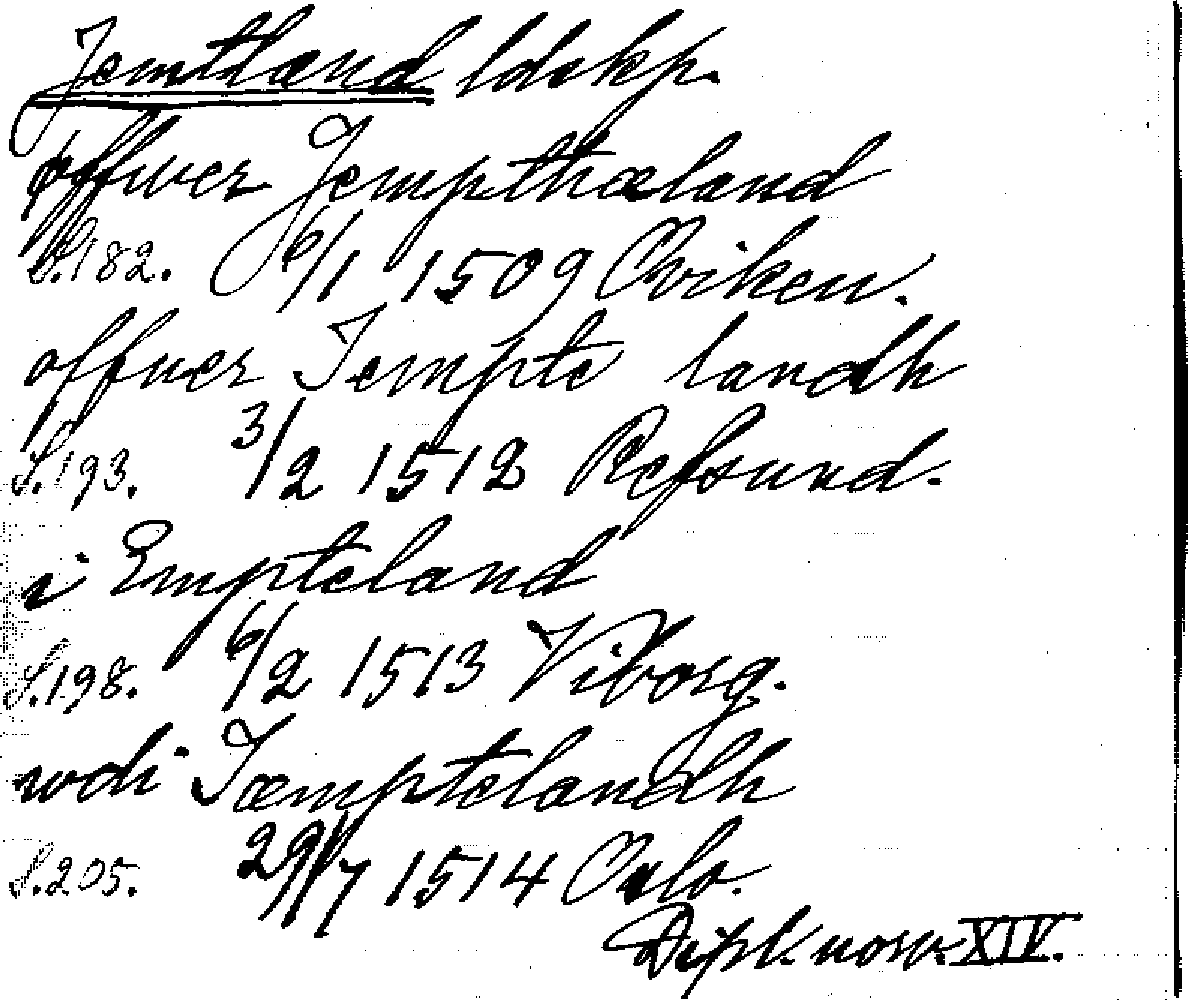 Jemtland ldskp.
offwer Jempthæland
S.182. 6/1 1509 Oviken.
offuer Jempte landh
S.193. 3/2 1512 Refsund.
i Empteland
S.198. 6/2 1513 Viborg.
wdi Jæmptelandh
S.205. 29/7 1514 Oslo.
Dipl. norv. XIV.